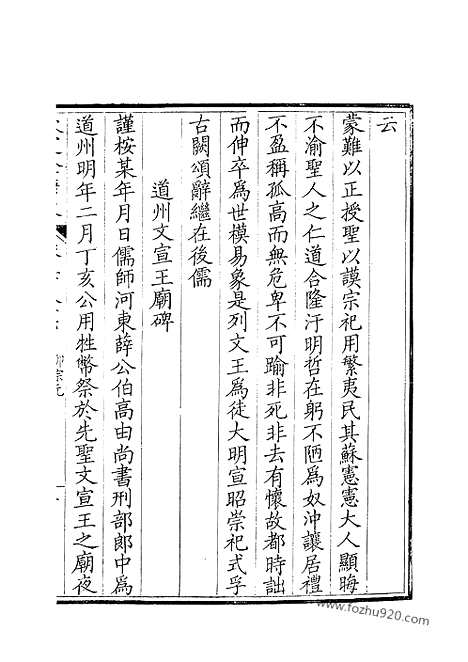 云
蒙難以正授聖以謨宗祀用繁夷民其蘇憲憲大人顯晦
不渝聖人之仁道合隆汙明哲在躬不陋爲奴沖讓居禮
不盈稱孤高而無危卑不可踰非死非去有懷故都時詘
而伸卒爲世模易象是列文王爲徒大明宣昭崇祀式孚
古闕頌辭繼在後儒
道州文宣王廟碑
謹桉某年月日儒師河東薛公伯高由尚書刑部郎中爲
道州明年二月丁亥公用牲幣祭於先聖文宣王之廟夜
柳宗元
www.fozhu920.com